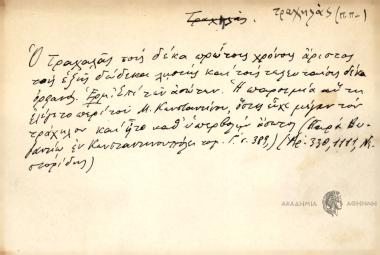 Τραχηλάς. τραχηλᾶς (π.π.-)
Ὁ Τραχαλᾶς τοῖς δέκα πρώτοις χρόνοις ἄριστος
τοῖς ἑξῆς δώδεκα λῃστὴς καὶ τοῖς τελευταίοις δέκα
ὀρφανός. Ἑρμ. Ἐπὶ τῶν ἀσώτων. Ἡ παροιμία αὕτη
ἐλέγετο περὶ τοῦ Μ. Κωνσταντίνου, ὅστις εἶχε μέγαν τὸν
τράχηλον καὶ ἦτο καθ' ὑπερβολὴν ἄσωτος (Παρὰ Βυ-
ζαντίῳ ἐν Κωνσταντινουπόλει τομ. Γ. σ. 389,) (Ἀρ. 338, 1111, Ν.
στορίδης)
ΑΚΑΔΗΜΙΑ ΑΘΗΝΩΝ